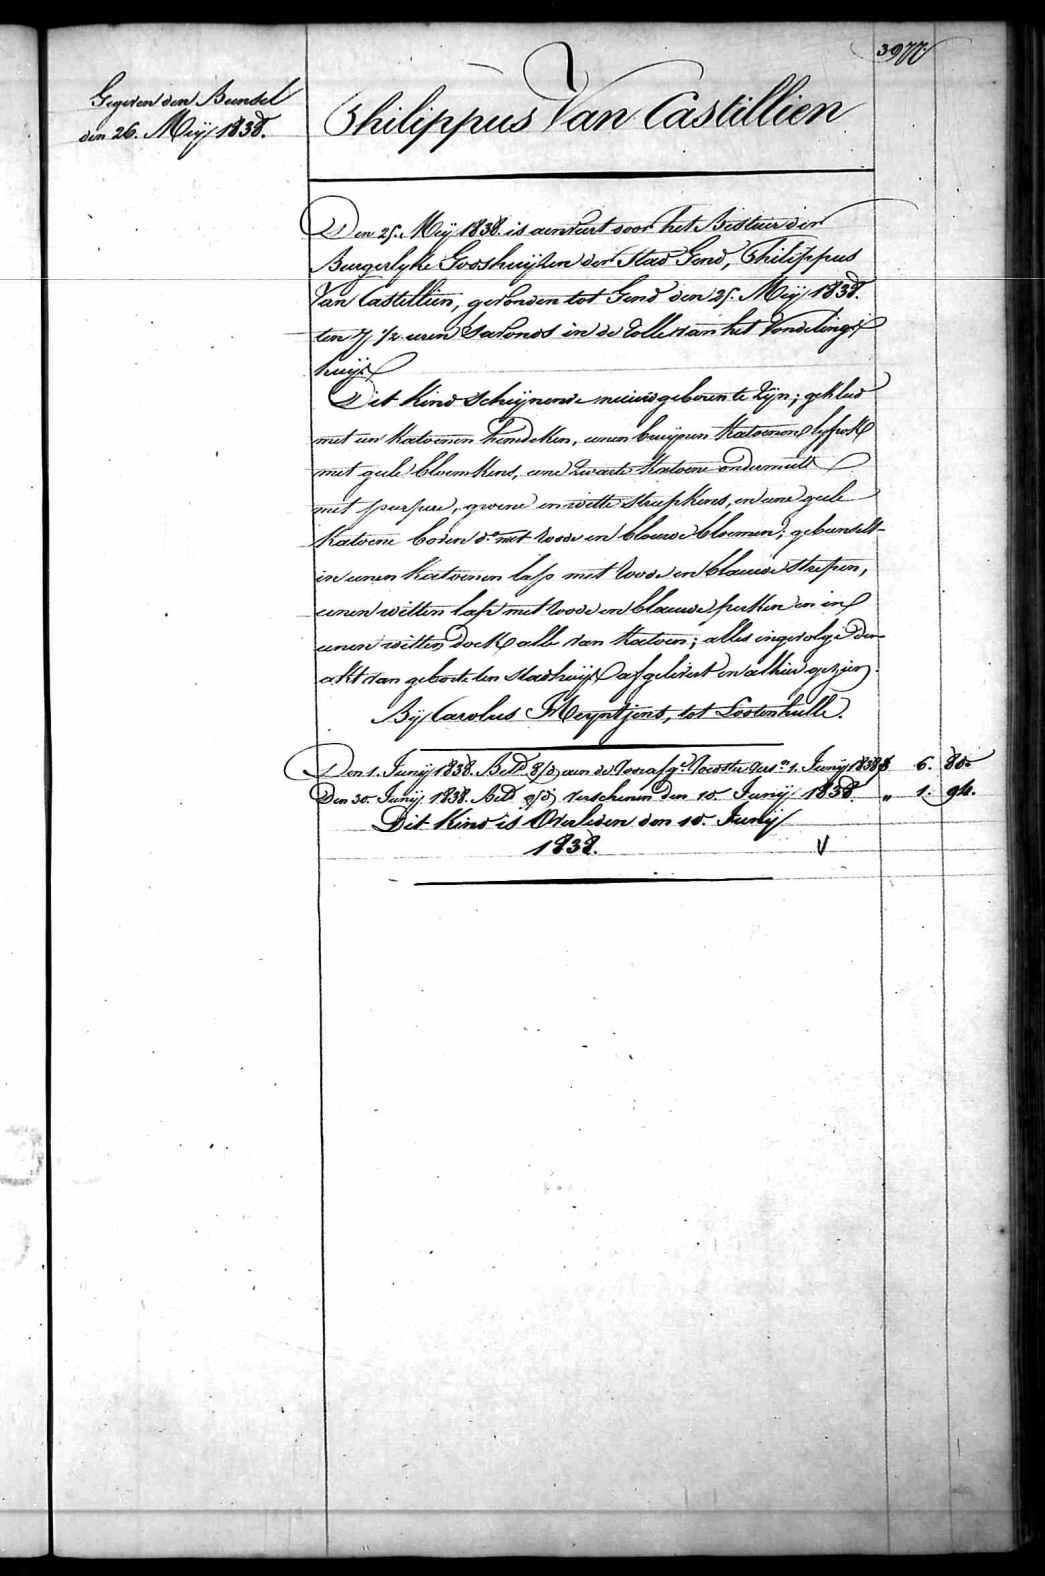 3977
Gegeven den Bundel
den 26. Meÿ 1838.
Philippus Van Castillien
Den 25. Meÿ 1838. is aenveert door het Bestuer der
Burgerlyke Godshuÿzen der Stad Gend, Philippus
Van Castillien, gevonden tot Gend den 25. Meÿ 1838.
ten 7 1/2 uren s'avonds in de rolle van het Vondelings
huÿs
Dit Kind Schÿnende nieuwgeboren te zÿn; gekleed
met een Katoenen hemdeken, eenen bruÿnen Katoenen lyfrok
met geele bloemkens, eene zwarte Katoene ondermuts
met purpere, groene en witte streepkens, en eene geele
Katoene boven do. met roode en blauwe bloemen; gebunselt
in eenen Katoenen lap met roode en blauwe streepen,
eenen witten lap met roode en blauwe perken en in
eenen witten doek alle van Katoen; alles ingevolge den
akt van geboorte ten stadhuÿse afgelevert en alhier gezien.
Bÿ Carolus Meyntjens, tot Lootenhulle.
Den 1. Junÿ 1838. Betd. aen de Voorafge. Voedster vers.n 1. Junÿ 1838 6. 80.
Den 30. Junÿ 1838. Betd. verschenen den 10. Junÿ 1838. „ 1. 94.
Dit Kind is Overleden den 10. Junÿ
1838. V